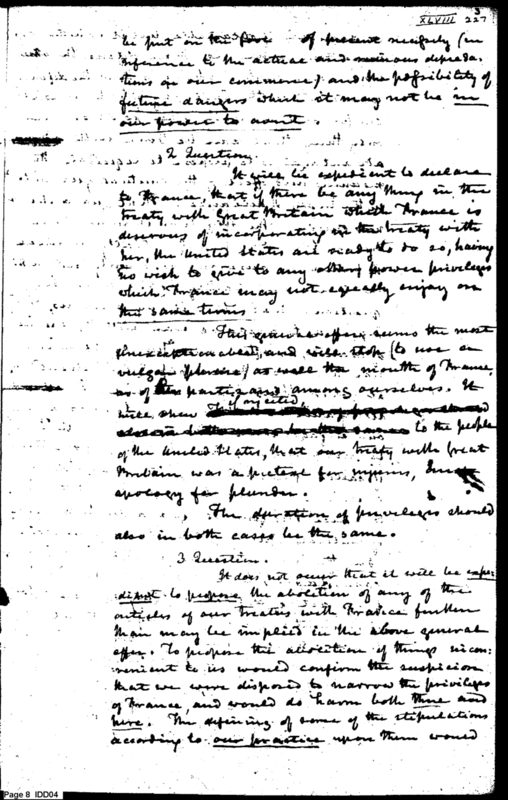 XLVIII 3
227
be put on the of present necessity (in
reference to the actual and ruinous depreda-
tions on our commerce) and the possibility of
future dangers which it may not be in
our power to avert.
2 Question
It will be expedient to declare
to France, that if there be any thing in the
treaty with Great Britain which France is
desirous of incorporating in the treaty with
her, the United States are ready to do so, having
no wish to give to any other power privileges
which France may not equally enjoy on
the same terms.
This general offer seems the most
unexceptionable, and will stop (to use a
vulgar phrase) as well the mouth of France,
as of her partizans among ourselves. It
will shew if rejected,
to the people
of the United States, that our treaty with Great
Britain was a pretext for injuries,
apology for plunder.
The duration of privileges should
also in both cases be the same.
3 Question.
It does not occur that it will be expe-
dient to propose the abolition of any of the
articles of our treaties with France further
than may be implied in the above general
offer. To propose the abolition of things incon-
venient to us would confirm the suspicion
that we were disposed to narrow the privileges
of France, and would do harm both there and
here. The defining of some of the stipulations
according to our practice upon them would
Page 8 IDD04